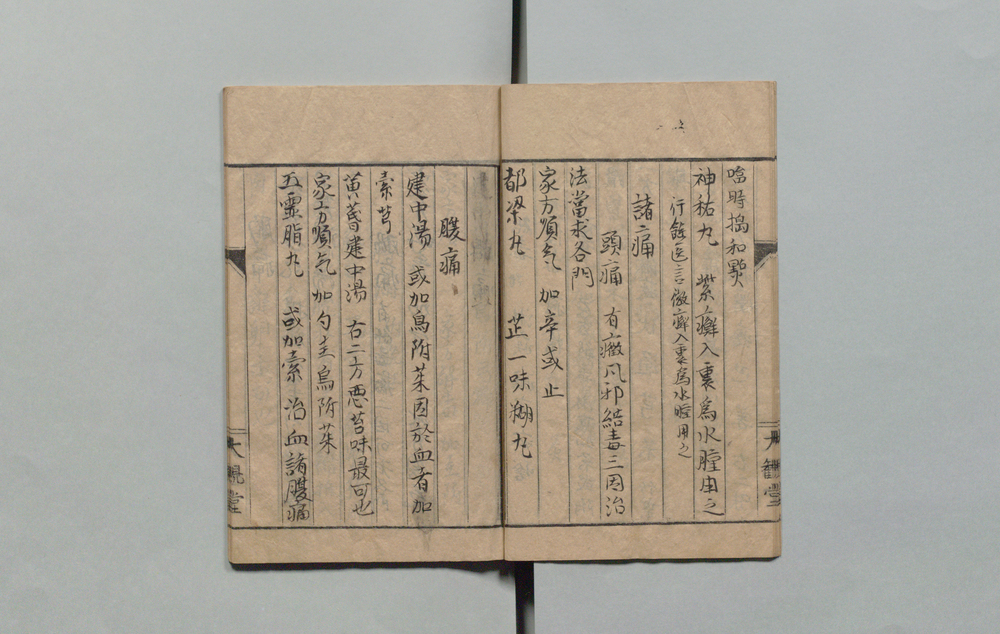 臨時搗和點
神祐丸 紫癬入裏為水腫用之
行餘医言徽癬入裏為水腫用之
諸痛
頭痛 有黴風邪結毒三因治
法當求各門
家方順气 加辛或止
都梁丸 芷一味糊丸
大観堂
腹痛
建中湯 或加烏附茱因於血者加
索芎
黄蓍建中湯 右二方悪苔味最可也
家方順气 加勺圭烏附茱
五靈脂丸 或加索 治血諸腹痛
大観堂